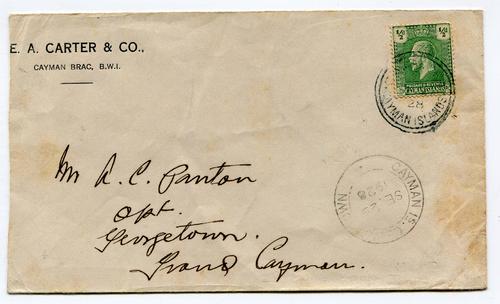 E. A. CARTER & CO.,
CAYMAN BRAC, B.W.I.
½D ½D
POSTAGE & REVENUE
CAYMAN ISLANDS
28
CAYMAN ISLANDS
Mr A. C. Panton
opt.
Georgetown.
Grand Cayman.
CAYMAN IS.
SE
1928
WN